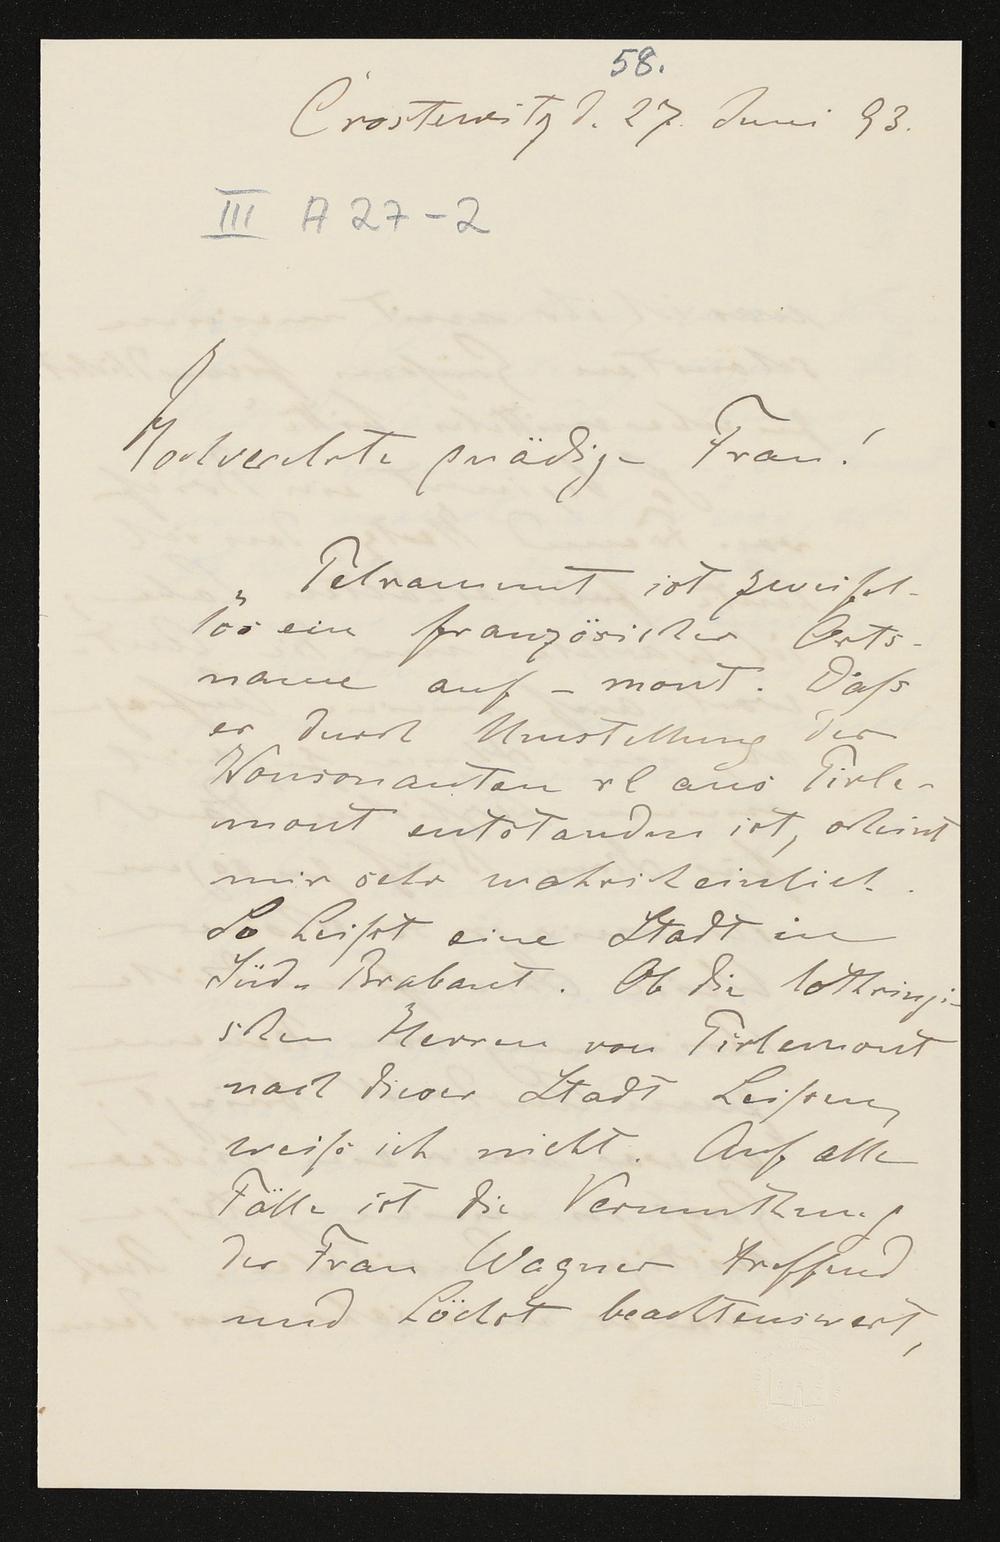 58.
Crostewitz d. 27. Juni 93.
III A 27-2
Hochverehrte gnädige Frau!
„Telramunt ist zweifel-
los ein französischer Orts-
name auf - mont. Daſs
er durch Umstellung der
Konsonanten rl aus Tirle-
mont entstanden ist, scheint
mir sehr wahrscheinlich.
So heiſst eine Stadt in
Süd-Brabant. Ob die lothringi-
schen Herren von Tirlemont
nach dieser Stadt heiſsen,
weiſs ich nicht. Auf alle
Fälle ist die Vermuthung
der Frau Wagner treffend
und höchst beachtenswert,